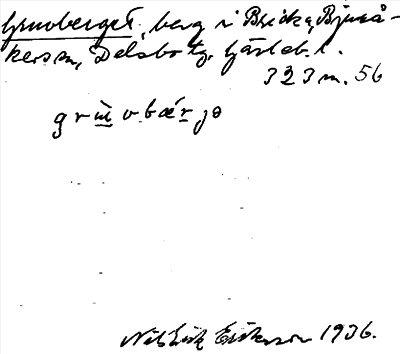 Gruvberget, berg i Bricka, Bjurå-
kers sn, Delsbo tg. Gävleb. l.
323 m. 56
grùvbær̀jə
Nils Erik Eriksson 1936.